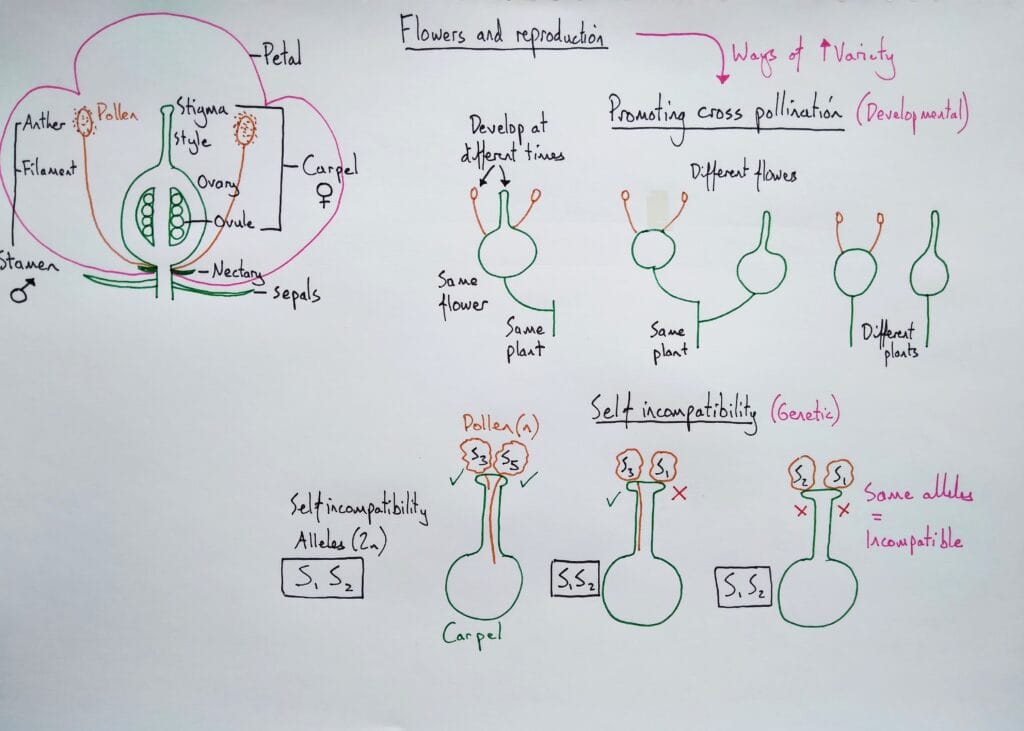 Flowers and reproduction
Ways of ↑ Variety
Petal
Anther
Pollen
Stigma
Style
Filament
Carpel
♀
Ovary
Ovule
Stamen
♂
Nectary
Sepals
Promoting cross pollination (Developmental)
Develop at
different times
Same
flower
Same
plant
Different flowes
Same
plant
Different
plants
Self incompatibility (Genetic)
Self incompatibility
Alleles (2n)
S₁ S₂
Pollen (n)
S₃ S₅
✓ ✓
Carpel
S₁S₂
S₃ S₁
✓ ×
S₁ S₂
S₂ S₁
× ×
Same alleles
=
Incompatible